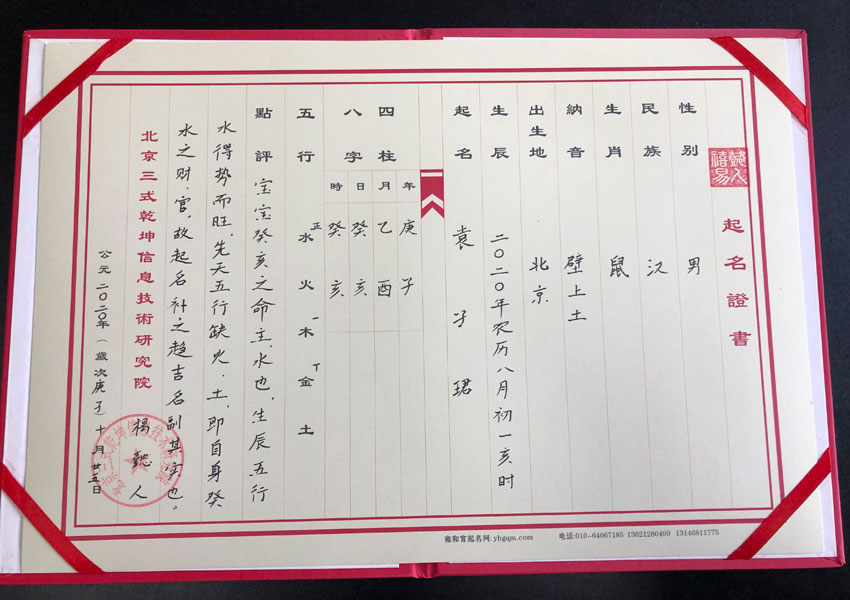 起名證書
性别 男
民族 汉
生肖 鼠
納音 壁上土
出生地 北京
生辰 二〇二〇年农历八月初一亥时
起名 袁子珺
四柱八字
年 庚子
月 乙酉
日 癸亥
時 癸亥
五行 水正 火 木一 金丁 土
點評 宝宝癸亥之命主,水也,生辰五行
水得势而旺,先天五行缺火.土,即自身癸
水之财.官,故起名补之趋吉名副其实也。
北京三式乾坤信息技術研究院
楊懿人
公元二〇二〇年(歲次庚子)十月廿五日
雍和宫起名网:yhgqm.com
电话:010-64067185 13621280499 13146811775